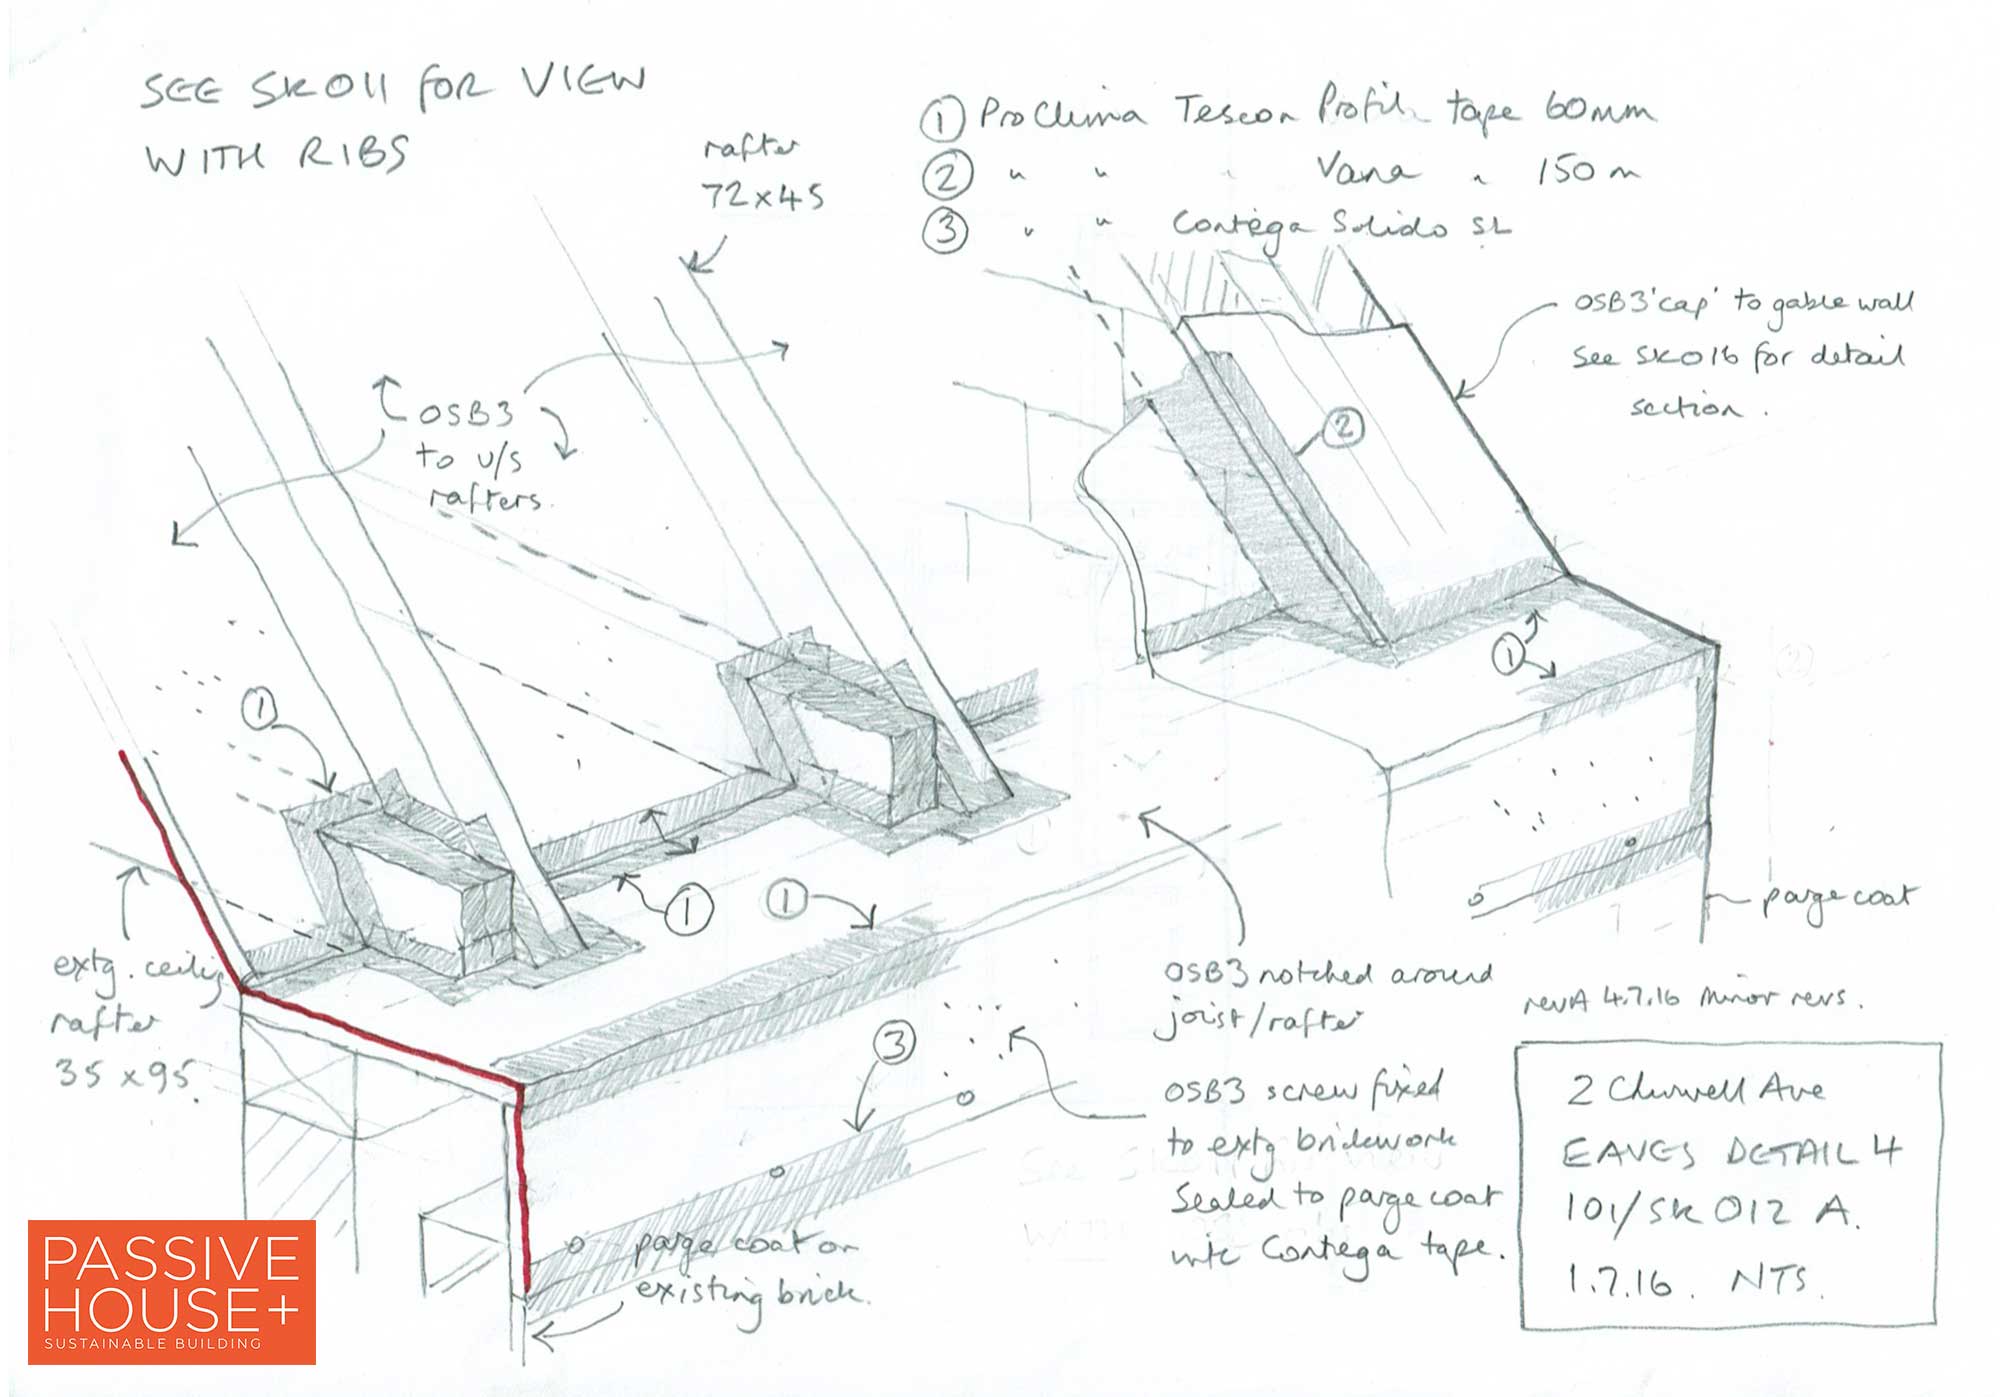 SEE SK011 FOR VIEW
WITH RIBS
rafter
72x45
① ProClima Tescon Profil tape 60mm
② " " " Vana " 150m
③ " " Contega Solido SL
OSB3 'cap' to gable wall
See SK016 for detail
section.
OSB3
to u/s
rafters.
②
①
①
①
①
③
extg. ceiling
rafter
35x95
parge coat
OSB3 notched around
joist/rafter
OSB3 screw fixed
to extg brickwork
Sealed to parge coat
with Contega tape.
parge coat on
existing brick.
revA 4.7.16 Minor revs.
2 Churwell Ave
EAVES DETAIL 4
101/SK012 A.
1.7.16. NTS.
PASSIVE
HOUSE+
SUSTAINABLE BUILDING